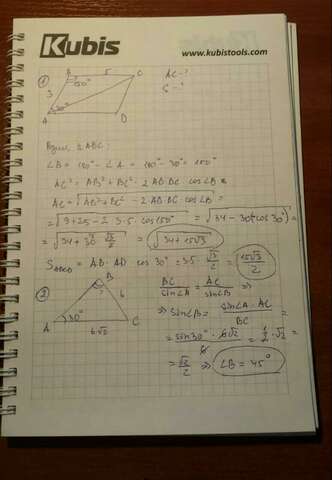 Kubis
www.kubistools.com
① B 5 C
150°
AC - ?
S - ?
3
30°
A D
∠B = 180° - ∠A = 180° - 30° = 150°
AC² = AB² + BC² - 2 AB·BC cos∠B
AC = √AB² + BC² - 2AB·BC cos∠B =
= √9 + 25 - 2·3·5·cos150° = √34 - 30(-cos30°) =
= √34 + 30 √3/2 = √34 + 15√3
S_ABCD = AB·AD cos 30° = 3·5·√3/2 = 15√3/2
② B
?
6
A 30° C
6√2
BC/sin∠A = AC/sin∠B
⇒ sin∠B = sin∠A · AC / BC =
= sin30° · 6√2 / 6 = 1/2 · √2 =
= √2/2 ⇒ ∠B = 45°